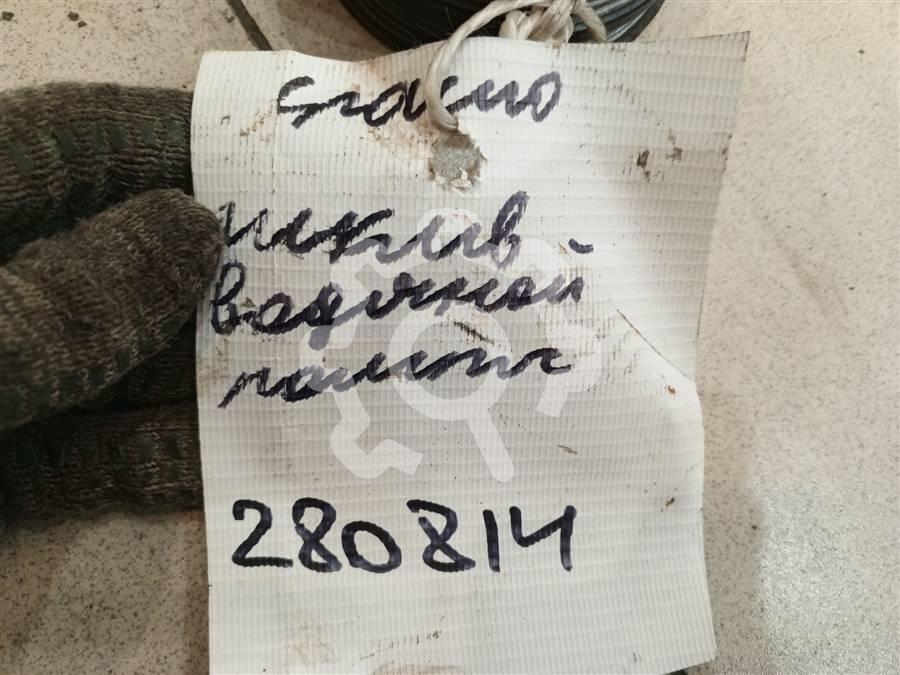 шкив
водяной
помпы
280814